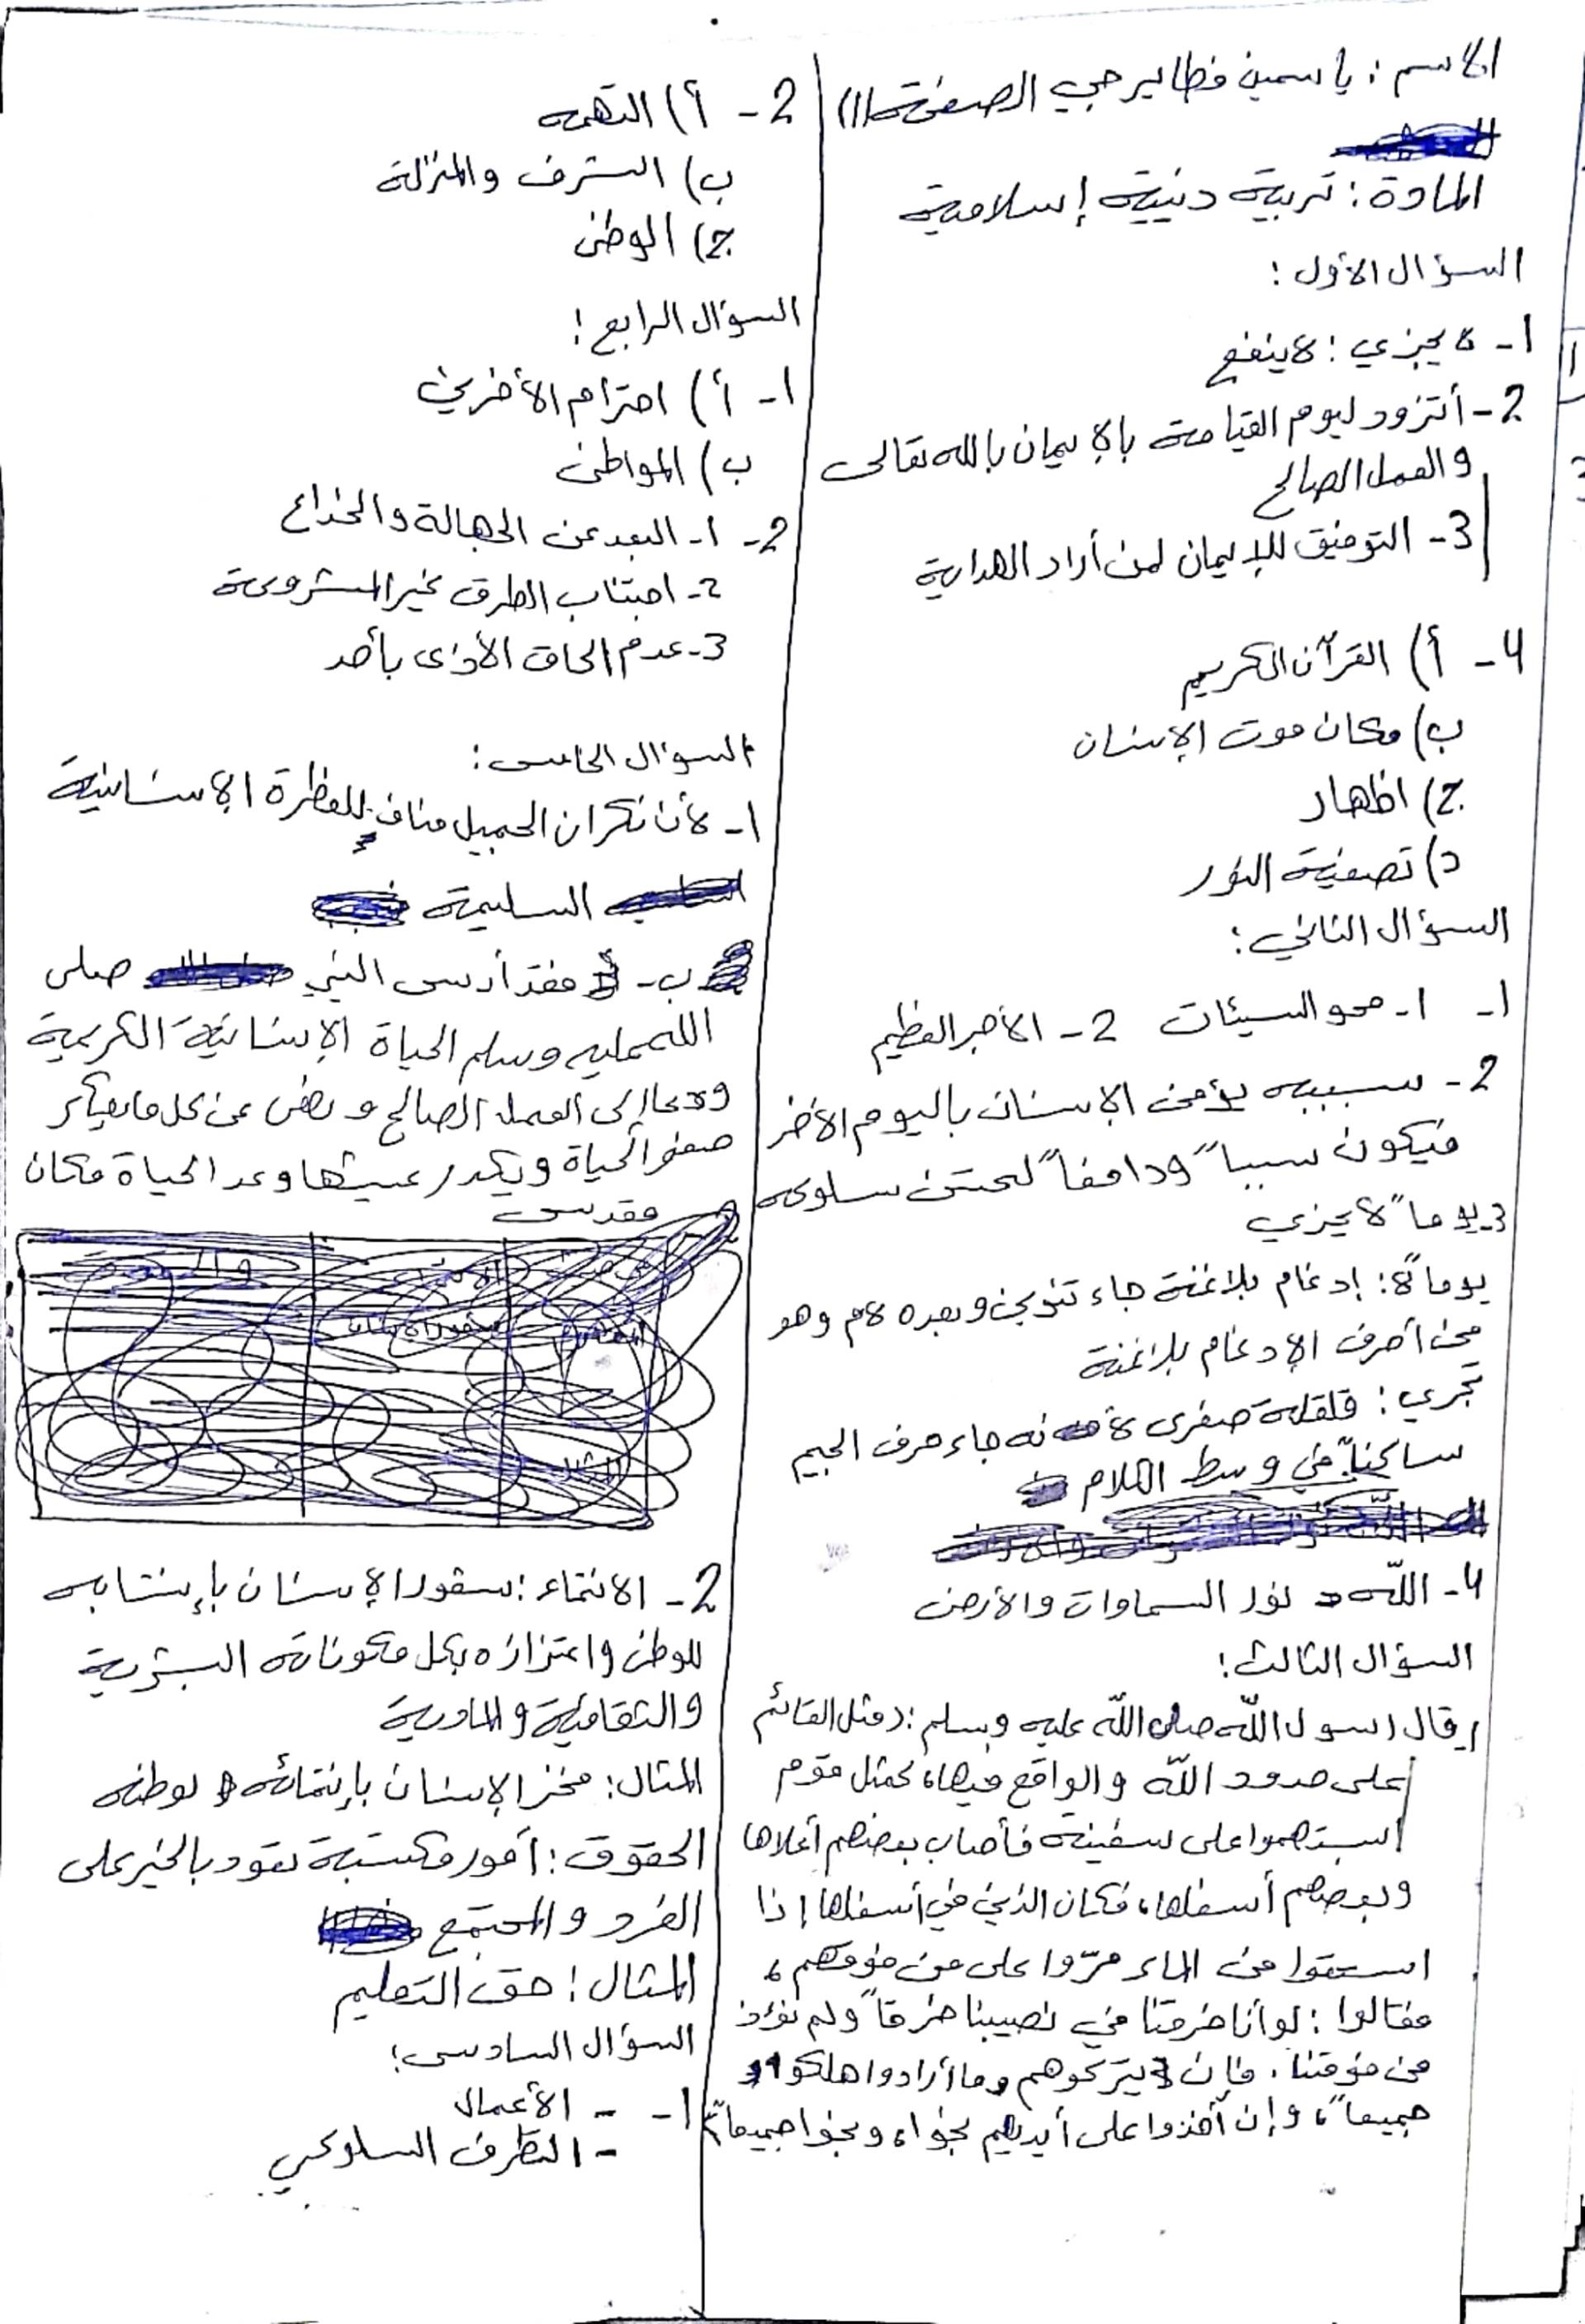 الاسم : ياسمين فطايرجي الصفحة (1)
المادة : تربية دينية إسلامية
السؤال الأول :
1- لا يجزي : لا ينفع
2- أتزود ليوم القيامة بالإيمان بالله تعالى
والعمل الصالح
3- التوفيق للإيمان لمن أراد الهداية
4- أ) القرآن الكريم
ب) مكان موت الإنسان
ج) اظهار
د) تصفية النور
السؤال الثاني :
1- 1- محو السيئات 2- الأجر العظيم
2- سببه يؤمن الإنسان باليوم الأخر
فيكون سبباً ودافعاً لحسن سلوكه
3- يوماً لا يجزي
يوماً لا : إدغام بلاغنة جاء تنوين وبعده لام وهو
من أحرف الإدغام بلاغنة
تجري : قلقلة صغرى لأنه جاء حرف الجيم
ساكناً في وسط الكلام
4- اللّه نور السماوات والأرض
السؤال الثالث :
1- قال رسول اللّه صلى اللّه عليه وسلم : (مثل القائم
على حدود اللّه والواقع فيها، كمثل قوم
استهموا على سفينة فأصاب بعضهم أعلاها
وبعضهم أسفلها، فكان الذين في أسفلها إذا
استقوا من الماء مرّوا على من فوقهم،
فقالوا : لو أنا خرقنا في نصيبنا خرقاً ولم نؤذ
من فوقنا، فإن يتركوهم وما أرادوا هلكوا
جميعاً، وإن أخذوا على أيديهم نجوا، ونجوا جميعاً)
2- أ) التهمه
ب) الشرف والمنزلة
ج) الوطن
السؤال الرابع :
1- أ) احترام الأخرين
ب) المواطن
2- 1- البعد عن الجهالة والخداع
2- اجتناب الطرق غير المشروعة
3- عدم الحاق الأذى بأحد
السؤال الخامس :
1- لأن نكران الجميل مناف للفطرة الإنسانية
السليمة
ب- فقد أرسى النبي صلى
الله عليه وسلم الحياة الإنسانية الكريمة
ودعا إلى العمل الصالح ونهى عن كل ما يعكر
صفو الحياة ويكدر عيشها وعد الحياة مكان
مقدس
2- الانتماء : شعور الإنسان بإنتسابه
للوطن واعتزازه بكل مكوناته البشرية
والثقافية والمادية
المثال : فخر الإنسان بإنتمائه لوطنه
الحقوق : أمور مكتسبة تعود بالخير على
الفرد والمجتمع
المثال : حق التعليم
السؤال السادس :
1- - الأعمال
- التطرف السلوكي